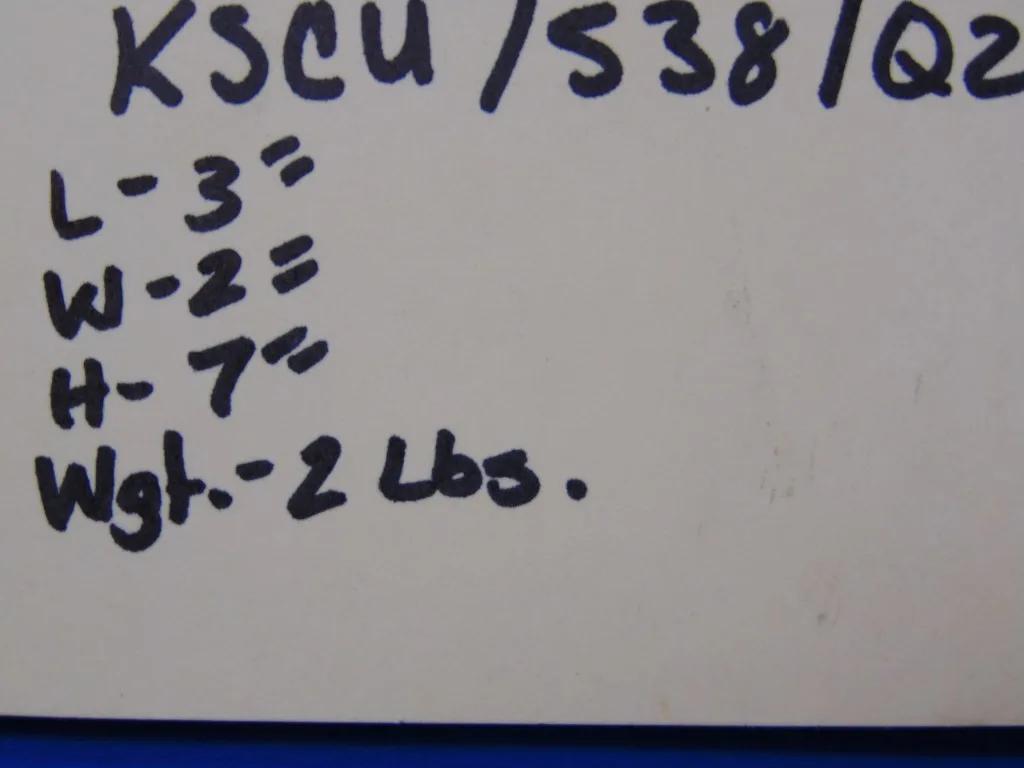 KSCU/538/Q2
L-3"
W-2"
H-7"
Wgt.-2 Lbs.